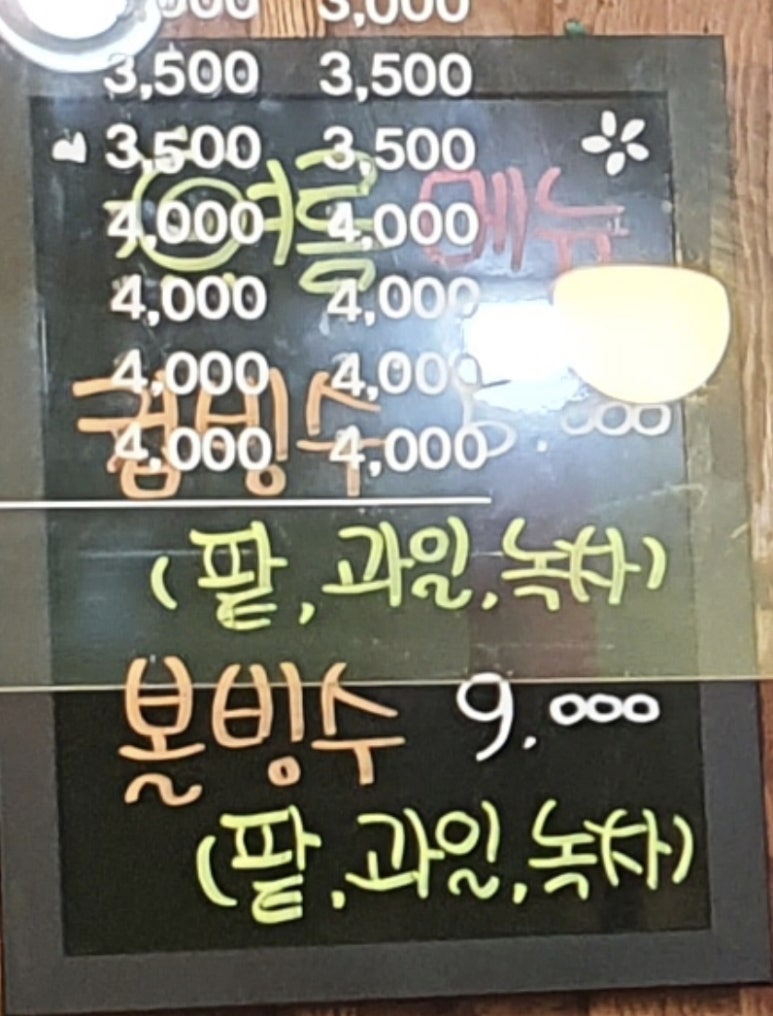 3,000
3,500 3,500
3,500 3,500
여름 메뉴
4,000 4,000
4,000 4,000
4,000 4,000
컵빙수
4,000 4,000
(팥, 과일, 녹차)
볼빙수 9.000
(팥, 과일, 녹차)